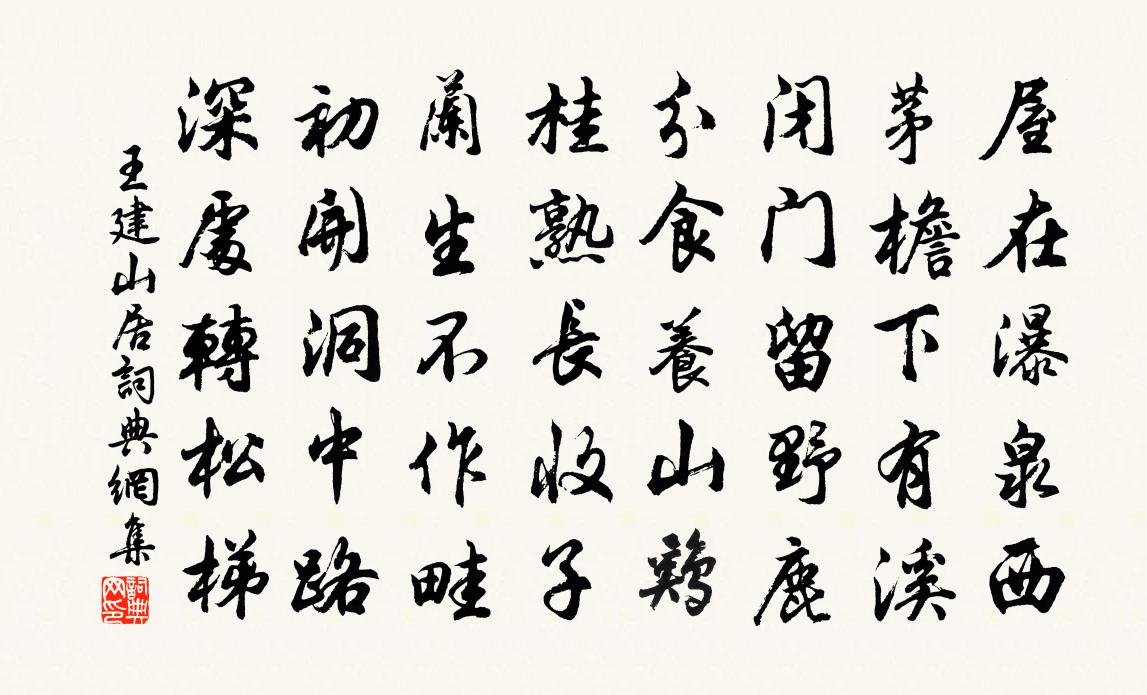 屋在瀑泉西
茅檐下有溪
闭门留野鹿
分食養山鷄
桂熟長收子
蘭生不作畦
初開洞中路
深處轉松梯
王建山居詞典網集
詞典
网印